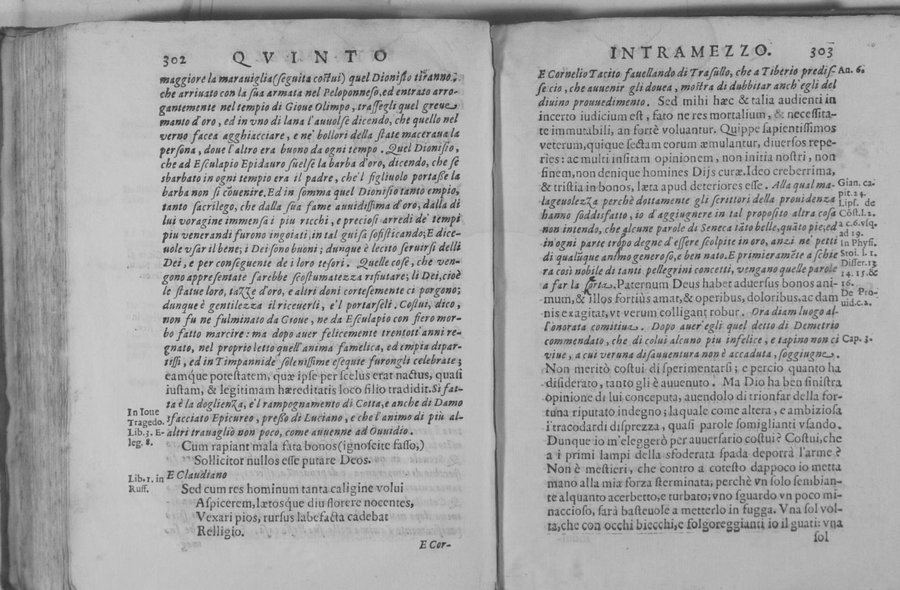 302 QVINTO
maggiore la marauiglia (seguita costui) quel Dionisio tiranno,
che arriuato con la sua armata nel Peloponneso, ed entrato arro-
gantemente nel tempio di Gioue Olimpo, trassegli quel greue
manto d'oro, ed in vno di lana l'auuolse dicendo, che quello nel
verno facea agghiacciare, e ne' bollori della state maceraua la
persona, doue l'altro era buono da ogni tempo. Quel Dionisio,
che ad Esculapio Epidauro suelse la barba d'oro, dicendo, che se
sbarbato in ogni tempio era il padre, che'l figliuolo portasse la
barba non si cōuenire. Ed in somma quel Dionisio tanto empio,
tanto sacrilego, che dalla sua fame auuidissima d'oro, dalla di
lui voragine immensa i piu ricchi, e preciosi arredi de' tempi
piu venerandi furono ingoiati, in tal guisa sofisticando; E dice-
uole vsar il bene; i Dei sono buoni; dunque è lecito seruirsi delli
Dei, e per conseguente de i loro tesori. Quelle cose, che ven-
gono appresentate sarebbe scostumatezza rifiutare; li Dei, cioè
le statue loro, tazze d'oro, e altri doni cortesemente ci porgono;
dunque è gentilezza il riceuerli, e'l portarseli. Costui, dico,
non fu ne fulminato da Gioue, ne da Esculapio con fiero mor-
bo fatto marcire: ma dopo auer felicemente trentott'anni re-
gnato, nel proprio letto quell'anima famelica, ed empia dipar-
tissi, ed in Timpannide solenissime esequte furongli celebrate;
eamque potestatem, quæ ipse per scelus erat nactus, quasi
iustam, & legitimam hæreditatis loco filio tradidit. Si fat-
ta è la doglienza, e'l rampognamento di Cotta, e anche di Damo
In Ioue sfacciato Epicureo, presso di Luciano, e che l'animo di più al-
Tragedo.
Lib. 3. E- altri trauagliò non poco, come auuenne ad Ouuidio.
leg. 8.
Cum rapiant mala fata bonos (ignoscite fasso,)
Sollicitor nullos esse putare Deos.
Lib. 1. in E Claudiano
Ruff. Sed cum res hominum tanta caligine volui
Aspicerem, lætosque diu florere nocentes,
Vexari pios, rursus labefacta cadebat
Relligio.
E Cor-
INTRAMEZZO. 303
E Cornelio Tacito fauellando di Trasullo, che a Tiberio predis- An. 6.
se cio, che auuenir gli douea, mostra di dubbitar anch'egli del
diuino prouuedimento. Sed mihi hæc & talia audienti in
incerto iudicium est, fato ne res mortalium, & necessita-
te immutabili, an fortè voluantur. Quippe sapientissimos
veterum, quique sectam eorum æmulantur, diuersos repe-
ries: ac multi insitam opinionem, non initia nostri, non
finem, non denique homines Dijs curæ. Ideo creberrima,
& tristia in bonos, læta apud deteriores esse. Alla qual ma- Gian. ca.
lageuolezza perchè dottamente gli scrittori della prouidenza pit. 24.
hanno soddisfatto, io d'aggiugnere in tal proposito altra cosa Lips. de
non intendo, che alcune parole di Seneca tāto belle, quāto pie, ed Cōst. l. 2.
in ogni parte tropo degne d'essere scolpite in oro, anzi ne' petti a c. 6. vsq.
di qualūque animo generoso, e ben nato. E primieramēte a schie ad 19.
ra così nobile di tanti pellegrini concetti, vengano quelle parole In Physi.
a far la scorta. Paternum Deus habet aduersus bonos ani- Stoi. l. 1.
mum, & illos fortiùs amat, & operibus, doloribus, ac dam Disser. 13
nis exagitat, vt verum colligant robur. Ora diam luogo al- 14. 15. &
l'onorata comitiua. Dopo auer'egli quel detto di Demetrio 16.
De Pro-
uid. c. 2.
commendato, che di colui alcuno piu infelice, e tapino non ci Cap. 3.
viue, a cui veruna disauuentura non è accaduta, soggiugne.
Non meritò costui di sperimentarsi; e perciò quanto ha
disiderato, tanto gli è auuenuto. Ma Dio ha ben sinistra
opinione di lui conceputa, auendolo di trionfar della for-
tuna riputato indegno; la quale come altera, e ambiziosa
i tracodardi disprezza, quasi parole somiglianti vsando.
Dunque io m'eleggerò per auuersario costui? Costui, che
a i primi lampi della sfoderata spada deporrà l'arme?
Non è mestieri, che contro a cotesto dappoco io metta
mano alla mia forza sterminata; perchè vn solo sembian-
te alquanto acerbetto, e turbato; vno sguardo vn poco mi-
naccioso, sarà basteuole a metterlo in fugga. Vna sol vol-
ta, che con occhi biecchi, e folgoreggianti io il guati: vna
sol